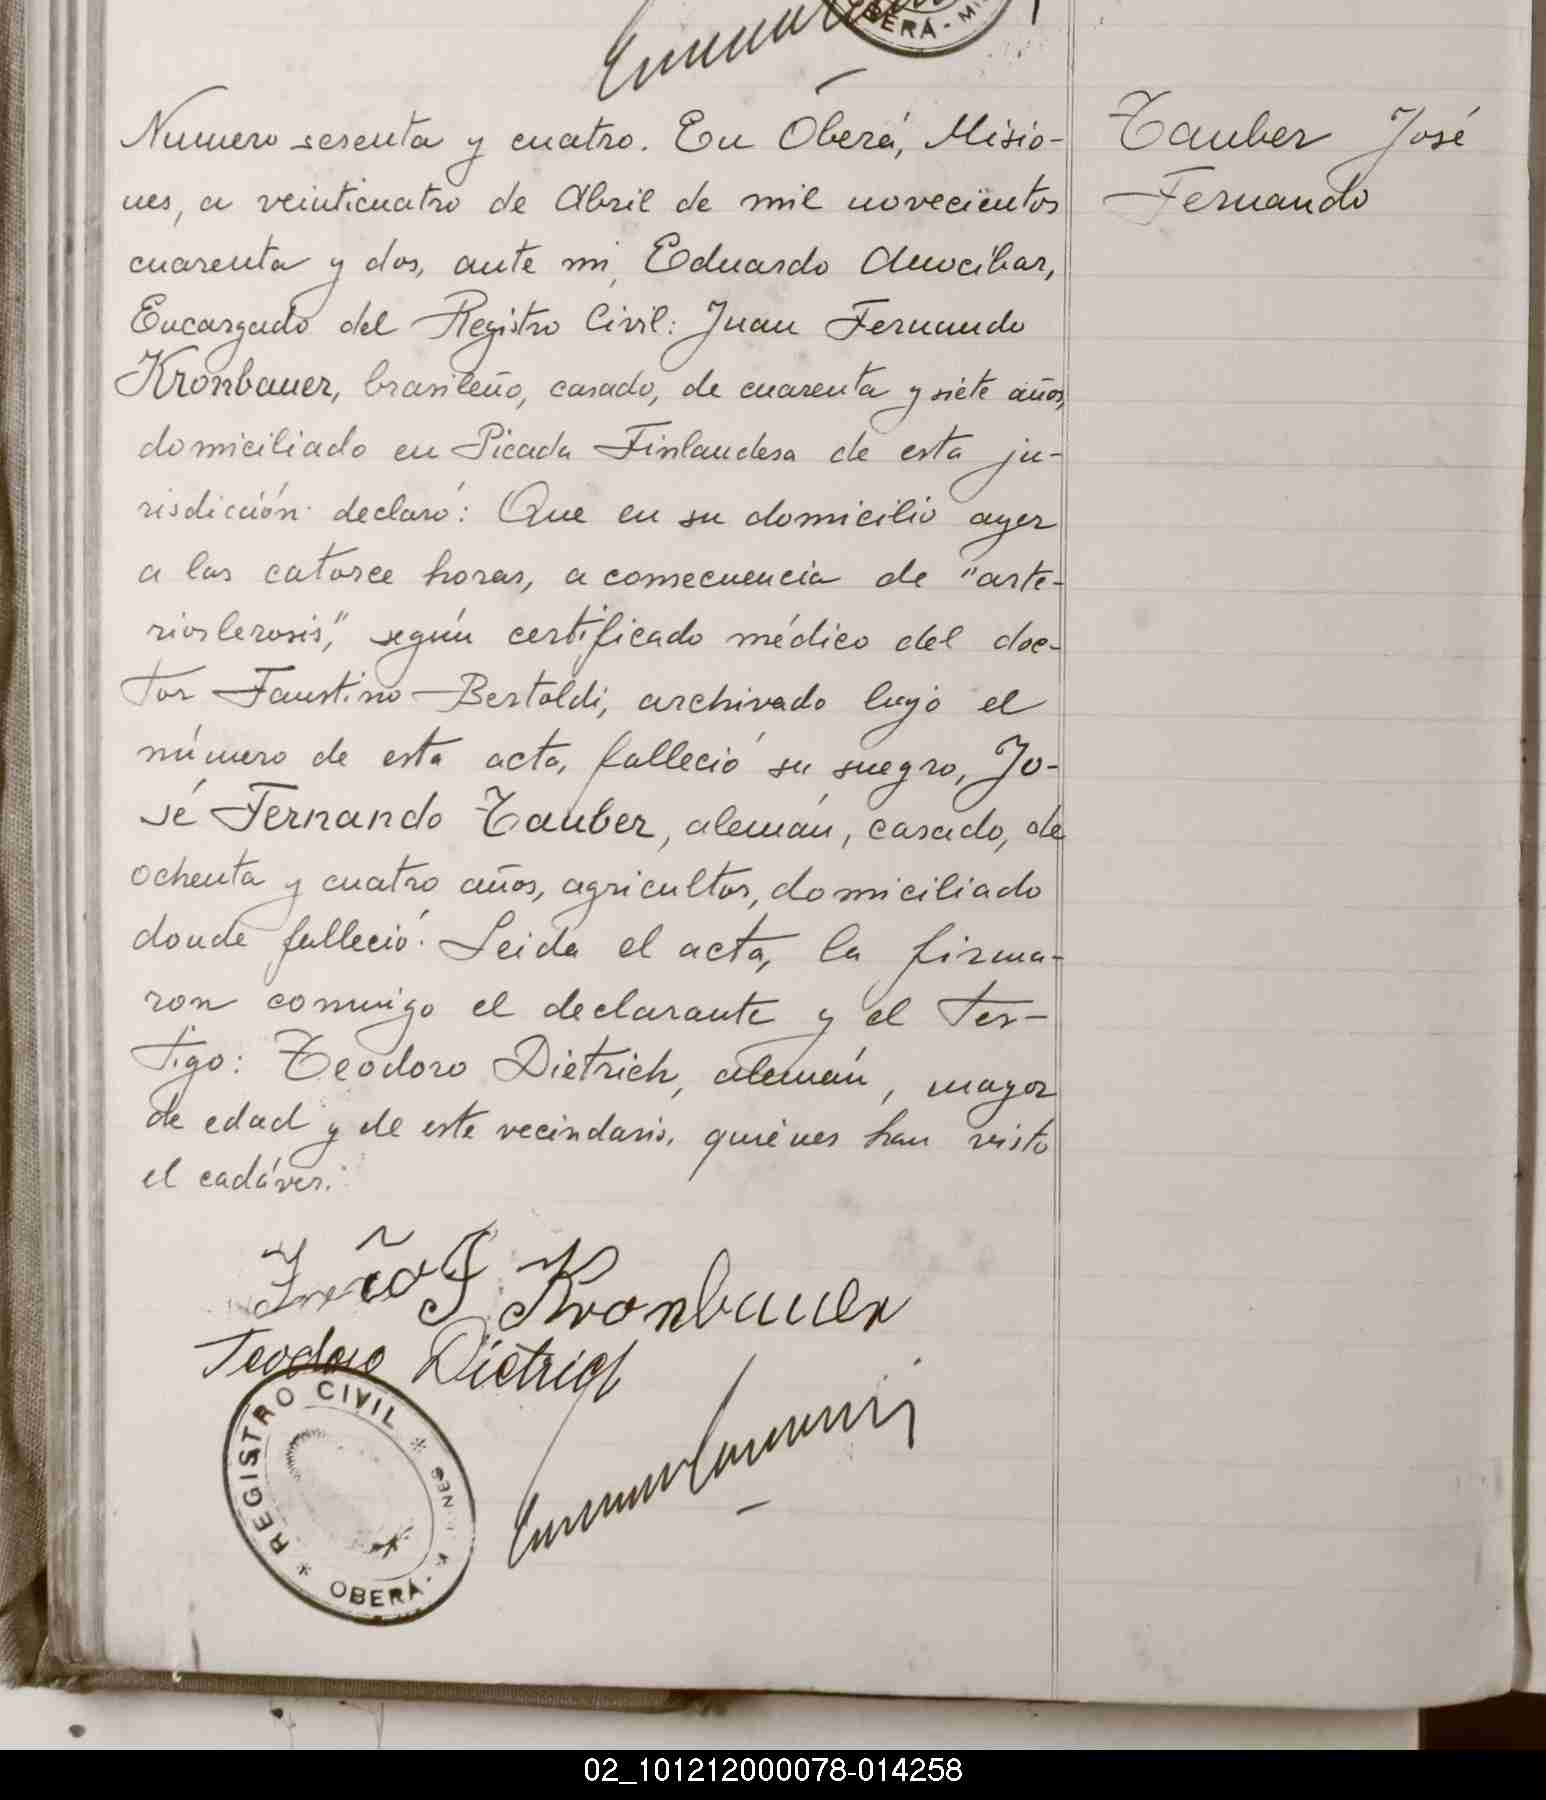 ERÁ - MI
Numero sesenta y cuatro. En Oberá, Misio-
nes, a veinticuatro de Abril de mil novecientos
cuarenta y dos, ante mi, Eduardo Amocibar,
Encargado del Registro Civil: Juan Fernando
Kronbauer, brasileño, casado, de cuarenta y siete años,
domiciliado en Picada Finlandesa de esta ju-
risdicción declaró: Que en su domicilio ayer
a las catorce horas, a consecuencia de "arte-
rioslerosis," según certificado médico del doc-
tor Faustino Bertoldi, archivado bajo el
número de esta acta, falleció su suegro, Jo-
sé Fernando Tauber, alemán, casado, de
ochenta y cuatro años, agricultor, domiciliado
donde falleció. Leida el acta, la firma-
ron conmigo el declarante y el tes-
tigo: Teodoro Dietrich, alemán, mayor
de edad y de este vecindario, quiénes han visto
el cadáver.
Tauber José
Fernando
F Kronbauer
Teodoro Dietrich
* REGISTRO CIVIL *
OBERÁ -
02_101212000078-014258